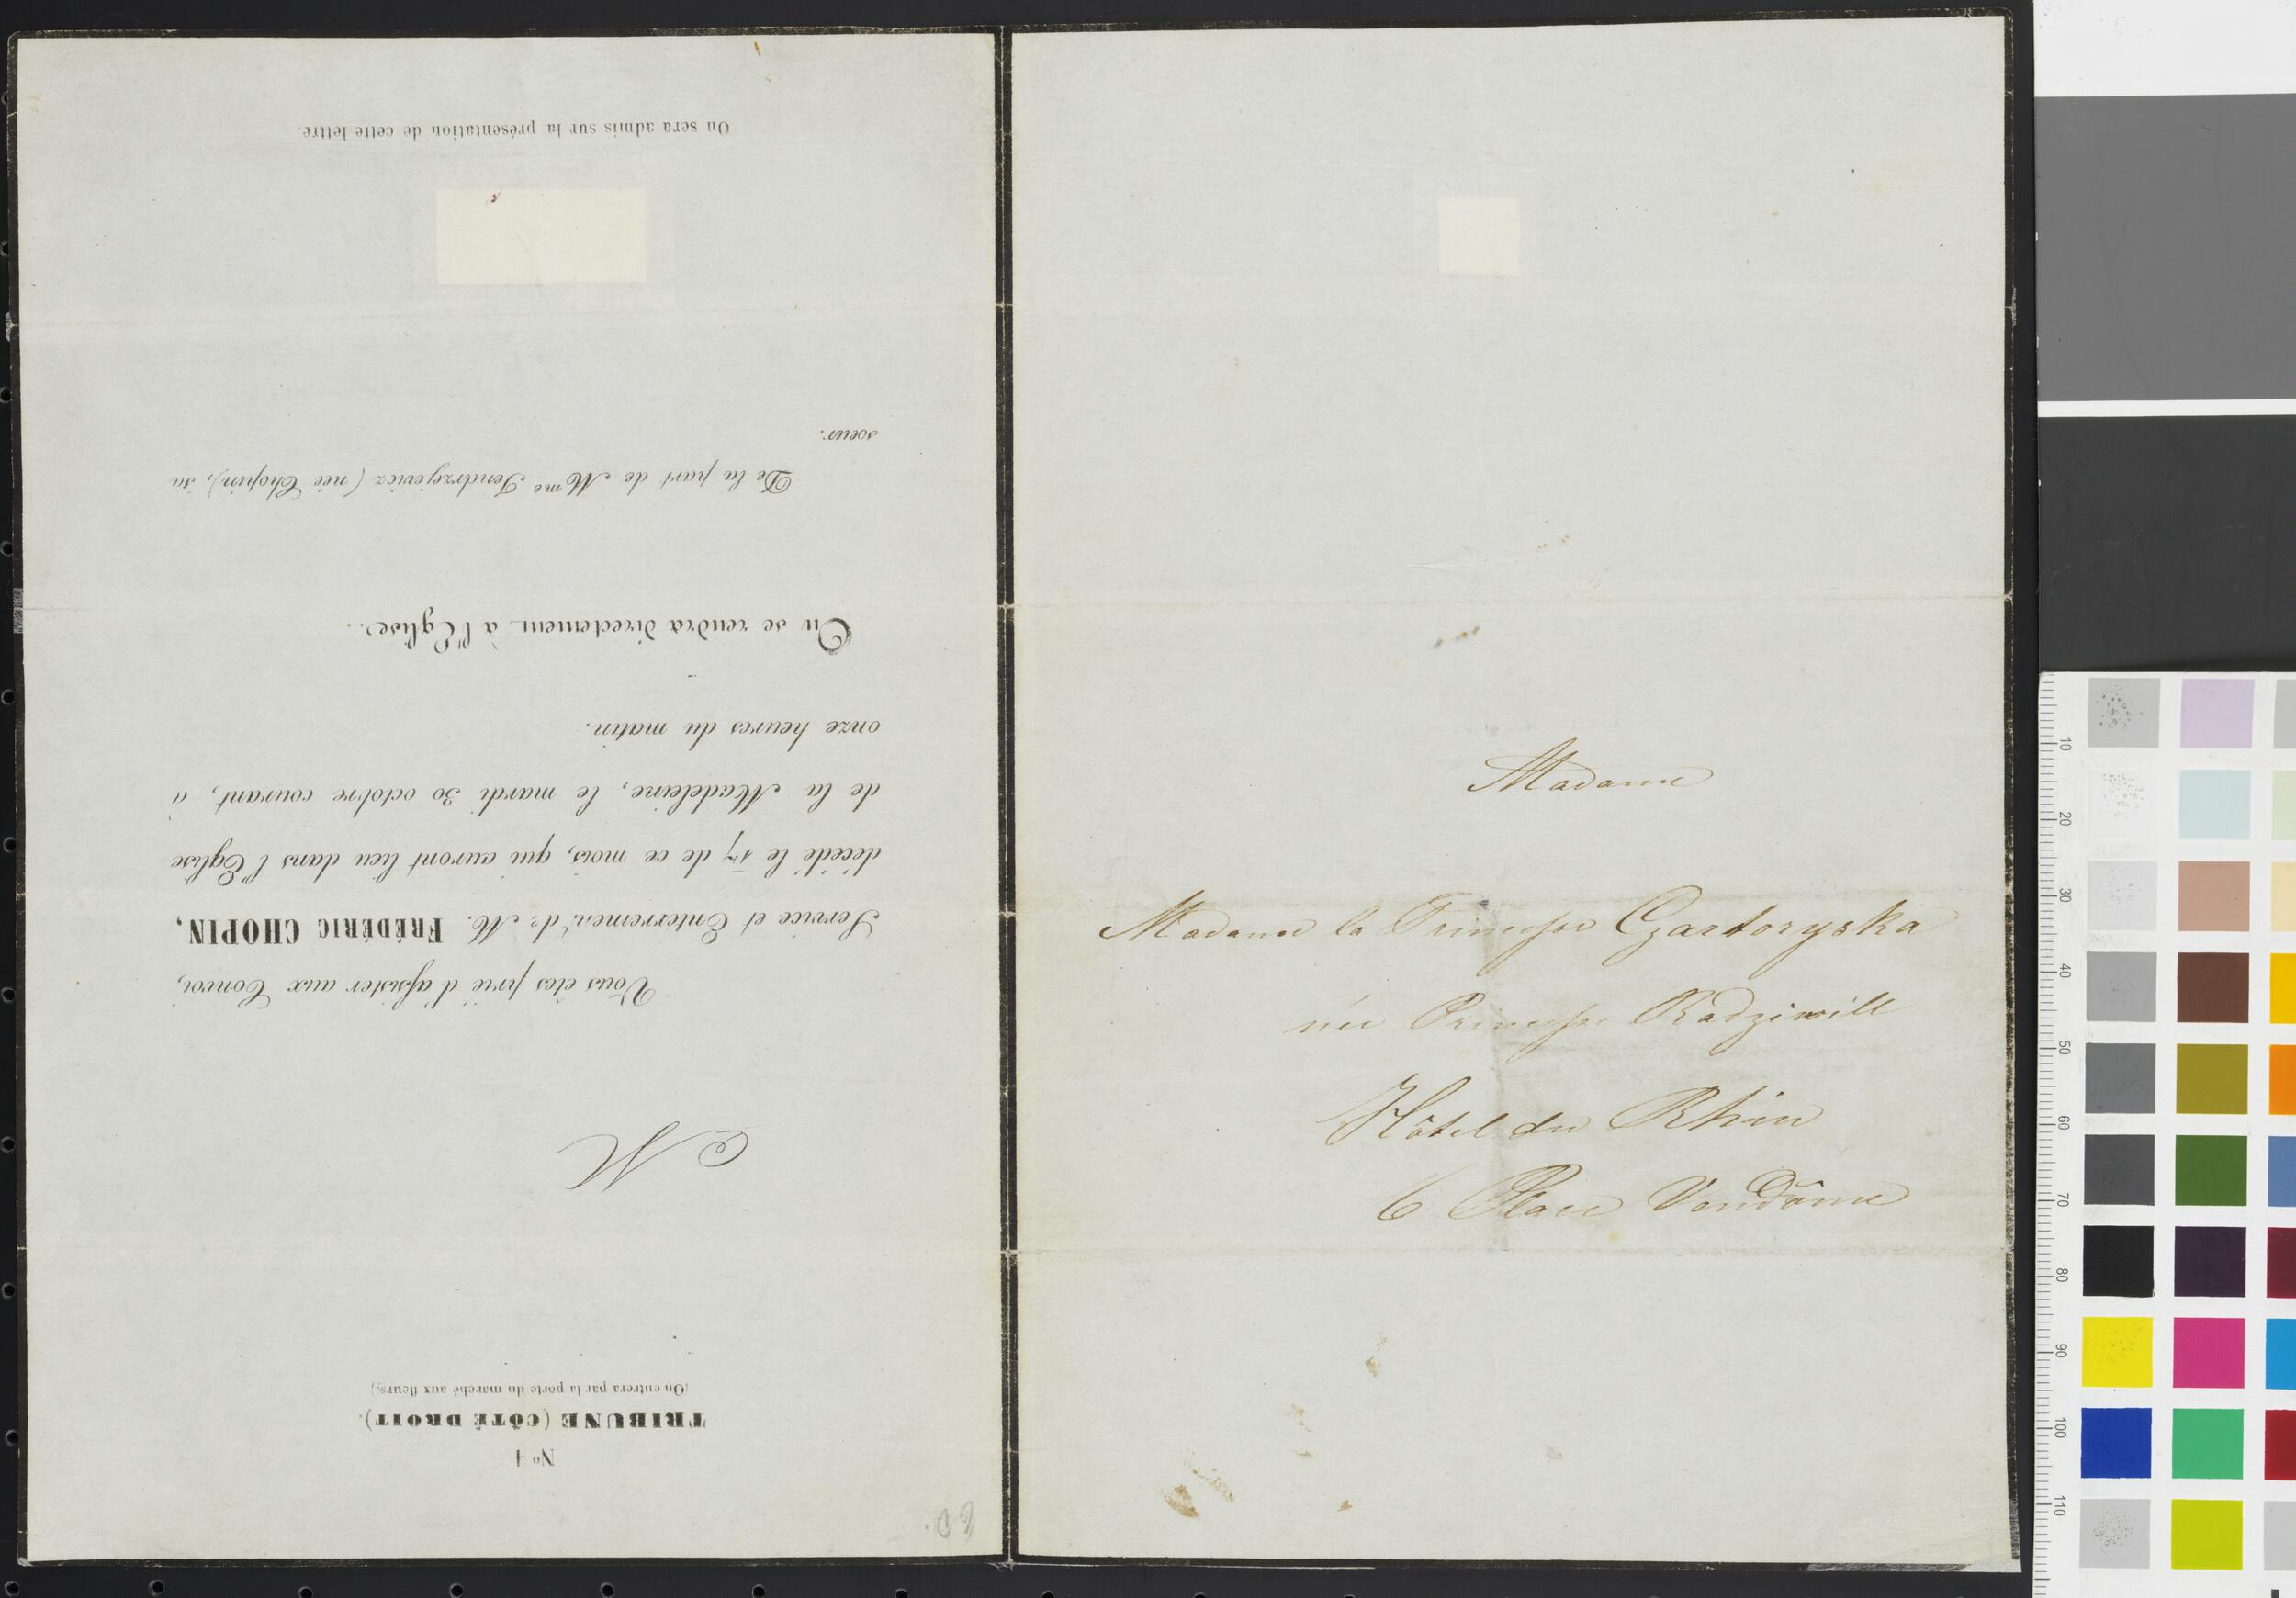 Nº 1
TRIBUNE (CÔTÉ DROIT).
(On entrera par la porte du marché aux fleurs.)
M
Vous êtes prié d'assister aux Convoi,
Service et Enterrement de M. FRÉDÉRIC CHOPIN,
décédé le 17 de ce mois, qui auront lieu dans l'Eglise
de la Madeleine, le mardi 30 octobre courant, à
onze heures du matin.
On se rendra directement à l'Eglise.
De la part de Mme Jendrzejewicz (née Chopin), sa
soeur.
On sera admis sur la présentation de cette lettre.
Madame
Madame la Princesse Czartoryska
née Princesse Radziwill
Hôtel du Rhin
6 Place Vendôme
10
20
30
40
50
60
70
80
90
100
110